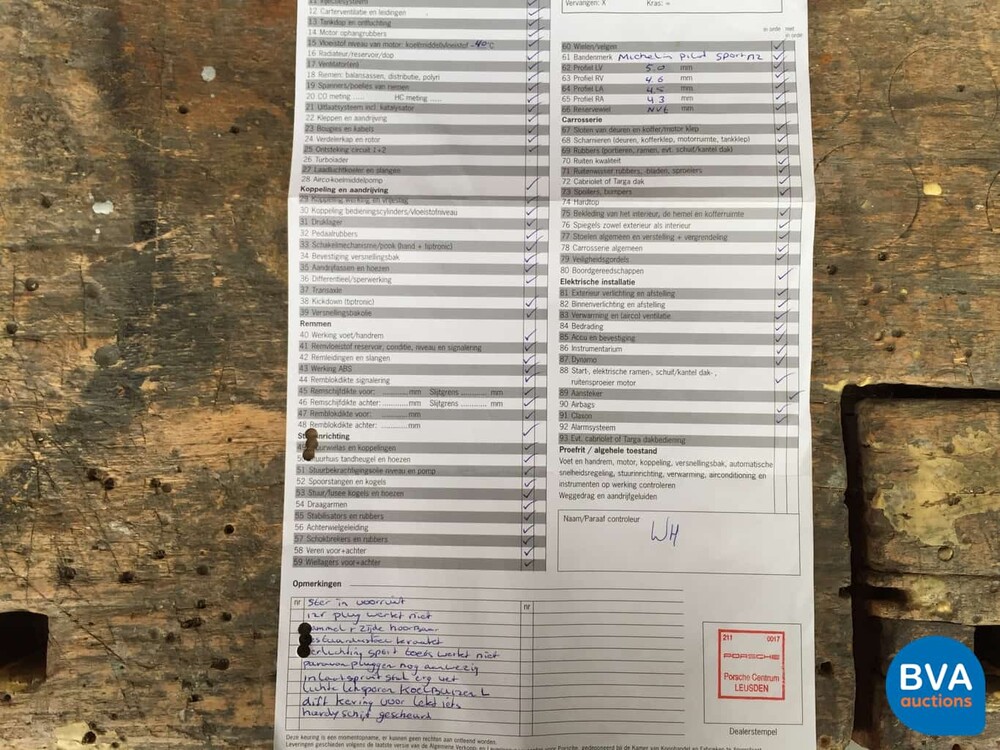 11 Injectiesysteem
12 Carterventilatie en leidingen
13 Tankdop en ontluchting
14 Motor ophangrubbers
15 Vloeistof niveau van motor: koelmiddelvloeistof -40°C
16 Radiateur/reservoir/dop
17 Ventilator(en)
18 Riemen: balansassen, distributie, polyn
19 Spanners/poelies van riemen
20 CO meting ..... HC meting .....
21 Uitlaatsysteem incl. katalysator
22 Kleppen en aandrijving
23 Bougies en kabels
24 Verdelerkap en rotor
25 Ontsteking circuit 1+2
26 Turbolader
27 Laadluchtkoeler en slangen
28 Airco-koelmiddelpomp
Koppeling en aandrijving
29 Koppeling werking en vrijslag
30 Koppeling bedieningscylinders/vloeistofniveau
31 Druklager
32 Pedaalrubbers
33 Schakelmechanisme/pook (hand + tiptronic)
34 Bevestiging versnellingsbak
35 Aandrijfassen en hoezen
36 Differentieel/sperwerking
37 Transaxle
38 Kickdown (tiptronic)
39 Versnellingsbakolie
Remmen
40 Werking voet/handrem
41 Remvloeistof reservoir, conditie, niveau en signalering
42 Remleidingen en slangen
43 Werking ABS
44 Remblokdikte signalering
45 Remschijfdikte voor: .......... mm Slijtgrens .......... mm
46 Remschijfdikte achter: .......... mm Slijtgrens .......... mm
47 Remblokdikte voor: .......... mm
48 Remblokdikte achter: .......... mm
inrichting
uurwielas en koppelingen
uurhuis tandheugel en hoezen
51 Stuurbekrachtigingsolie niveau en pomp
52 Spoorstangen en kogels
53 Stuur/fusee kogels en hoezen
54 Draagarmen
55 Stabilisators en rubbers
56 Achterwielgeleiding
57 Schokbrekers en rubbers
58 Veren voor+achter
59 Wiellagers voor+achter
Vervangen: X Kras: =
in orde niet in orde
60 Wielen/velgen
61 Bandenmerk Michelin pilot sport N2
62 Profiel LV 5.0 mm
63 Profiel RV 4.6 mm
64 Profiel LA 4.5 mm
65 Profiel RA 4.3 mm
66 Reservewiel NVT mm
Carrosserie
67 Sloten van deuren en koffer/motor klep
68 Scharnieren (deuren, kofferklep, motorruimte, tankklep)
69 Rubbers (portieren, ramen, evt. schuif/kantel dak)
70 Ruiten kwaliteit
71 Ruitenwisser rubbers, bladen, sproeiers
72 Cabriolet of Targa dak
73 Spoilers, bumpers
74 Hardtop
75 Bekleding van het interieur, de hemel en kofferruimte
76 Spiegels zowel exterieur als interieur
77 Stoelen algemeen en verstelling + vergrendeling
78 Carrosserie algemeen
79 Veiligheidsgordels
80 Boordgereedschappen
Elektrische installatie
81 Exterieur verlichting en afstelling
82 Binnenverlichting en afstelling
83 Verwarming en (airco) ventilatie
84 Bedrading
85 Accu en bevestiging
86 Instrumentarium
87 Dynamo
88 Start-, elektrische ramen-, schuif/kantel dak-,
ruitensproeier motor
89 Aansteker
90 Airbags
91 Claxon
92 Alarmsysteem
93 Evt. cabriolet of Targa dakbediening
Proefrit / algehele toestand
Voet en handrem, motor, koppeling, versnellingsbak, automatische
snelheidsregeling, stuurinrichting, verwarming, airconditioning en
instrumenten op werking controleren
Weggedrag en aandrijfgeluiden
Naam/Paraaf controleur
WH
Opmerkingen
nr nr
Ster in voorruit
12v plug werkt niet
rammel r zijde hoorbaar
verlichting sport toets werkt niet
paravan pluggen nog aanwezig
inlaatspruitstuk erg vet
lichte leksporen koelbuizen L
diff keving voor lekt iets
hardy schijf gescheurd
211 0017
PORSCHE
Porsche Centrum
LEUSDEN
Dealerstempel
Deze keuring is een momentopname, er kunnen geen rechten aan ontleend worden.
BVA
auctions